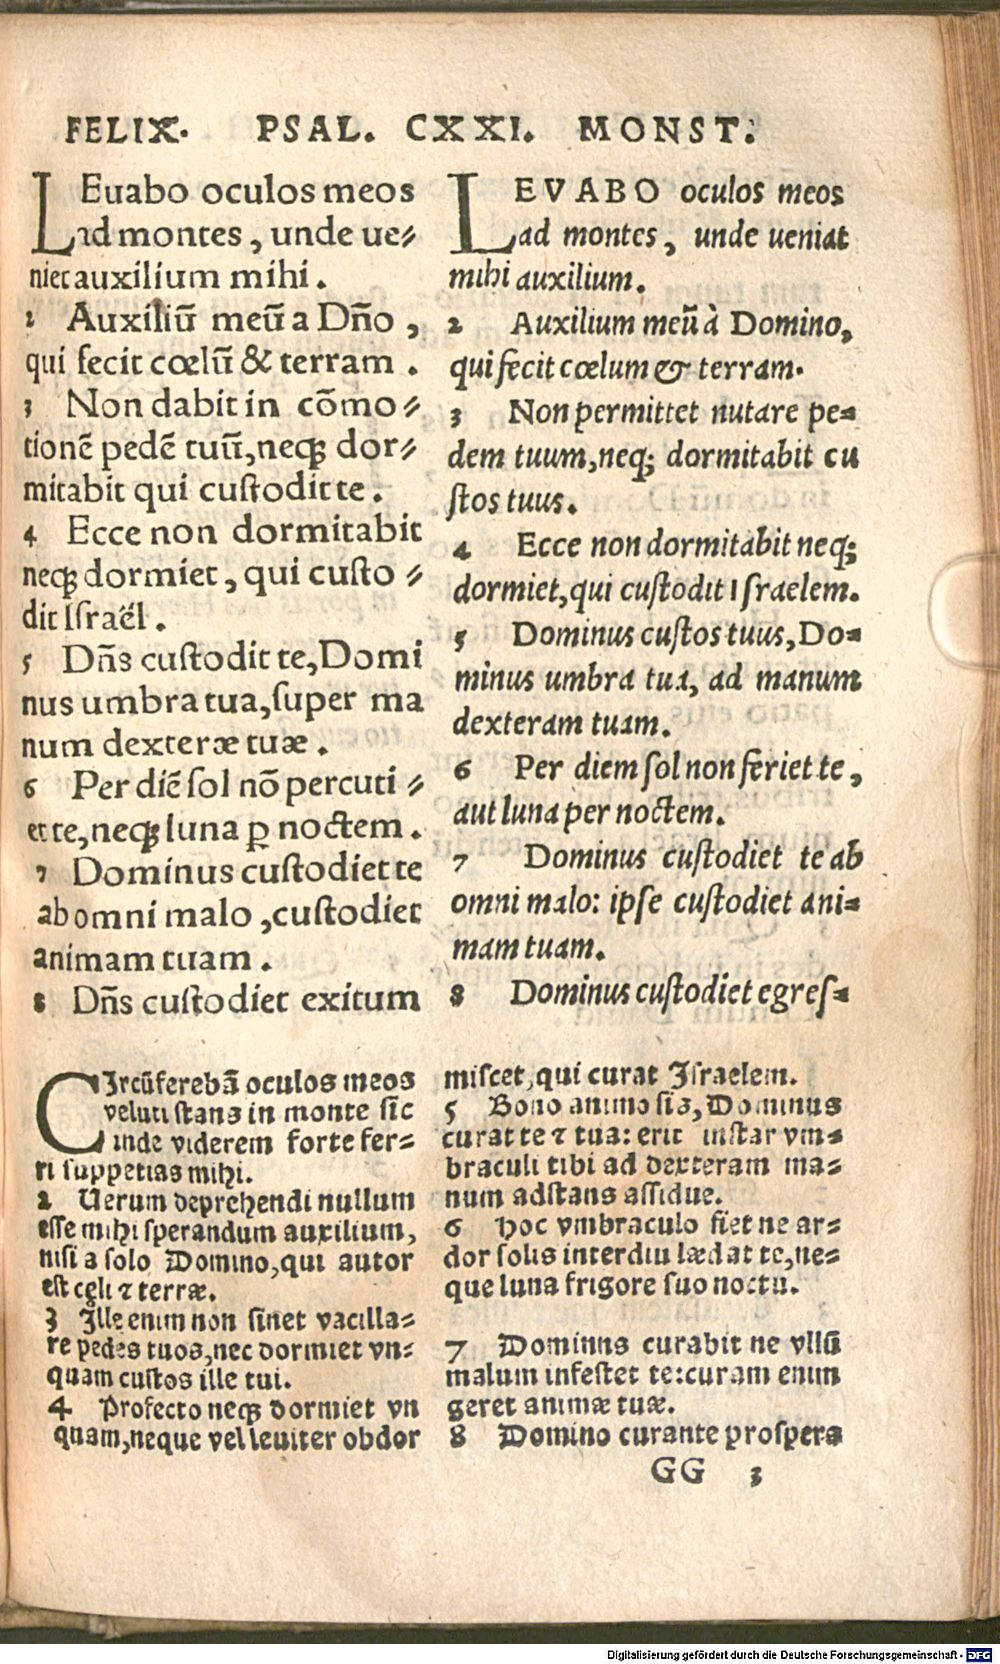 FELIX. PSAL. CXXI. MONST.
LEuabo oculos meos
ad montes, unde ue⸗
niet auxilium mihi.
2 Auxiliū meū a Dño,
qui fecit cœlū & terram.
3 Non dabit in cōmo⸗
tionē pedē tuū, neq; dor⸗
mitabit qui custodit te.
4 Ecce non dormitabit
neq; dormiet, qui custo⸗
dit Israël.
5 Dñs custodit te, Domi
nus umbra tua, super ma
num dexteræ tuæ.
6 Per diē sol nō percuti⸗
et te, neq; luna ꝑ noctem.
7 Dominus custodiet te
ab omni malo, custodiet
animam tuam.
8 Dñs custodiet exitum
LEVABO oculos meos
ad montes, unde ueniat
mihi auxilium.
2 Auxilium meū à Domino,
qui fecit cœlum & terram.
3 Non permittet nutare pe⸗
dem tuum, neq; dormitabit cu
stos tuus.
4 Ecce non dormitabit neq;
dormiet, qui custodit Israelem.
5 Dominus custos tuus, Do⸗
minus umbra tua, ad manum
dexteram tuam.
6 Per diem sol non feriet te,
aut luna per noctem.
7 Dominus custodiet te ab
omni malo: ipse custodiet ani⸗
mam tuam.
8 Dominus custodiet egres⸗
CIrcūferebā oculos meos
veluti stans in monte sic
inde viderem forte fer⸗
ri suppetias mihi.
2 Uerum deprehendi nullum
esse mihi sperandum auxilium,
nisi a solo Domino, qui autor
est cęli ⁊ terræ.
3 Ille enim non sinet vacilla⸗
re pedes tuos, nec dormiet vn⸗
quam custos ille tui.
4 Profecto neq; dormiet vn
quam, neque vel leuiter obdor
miscet, qui curat Israelem.
5 Bono animo sis, Dominus
curat te ⁊ tua: erit instar vm⸗
braculi tibi ad dexteram ma⸗
num adstans assidue.
6 Hoc vmbraculo fiet ne ar⸗
dor solis interdiu lædat te, ne⸗
que luna frigore suo noctu.
7 Dominns curabit ne vllū
malum infestet te: curam enim
geret animæ tuæ.
8 Domino curante prospera
GG 3
Digitalisierung gefördert durch die Deutsche Forschungsgemeinschaft - DFG